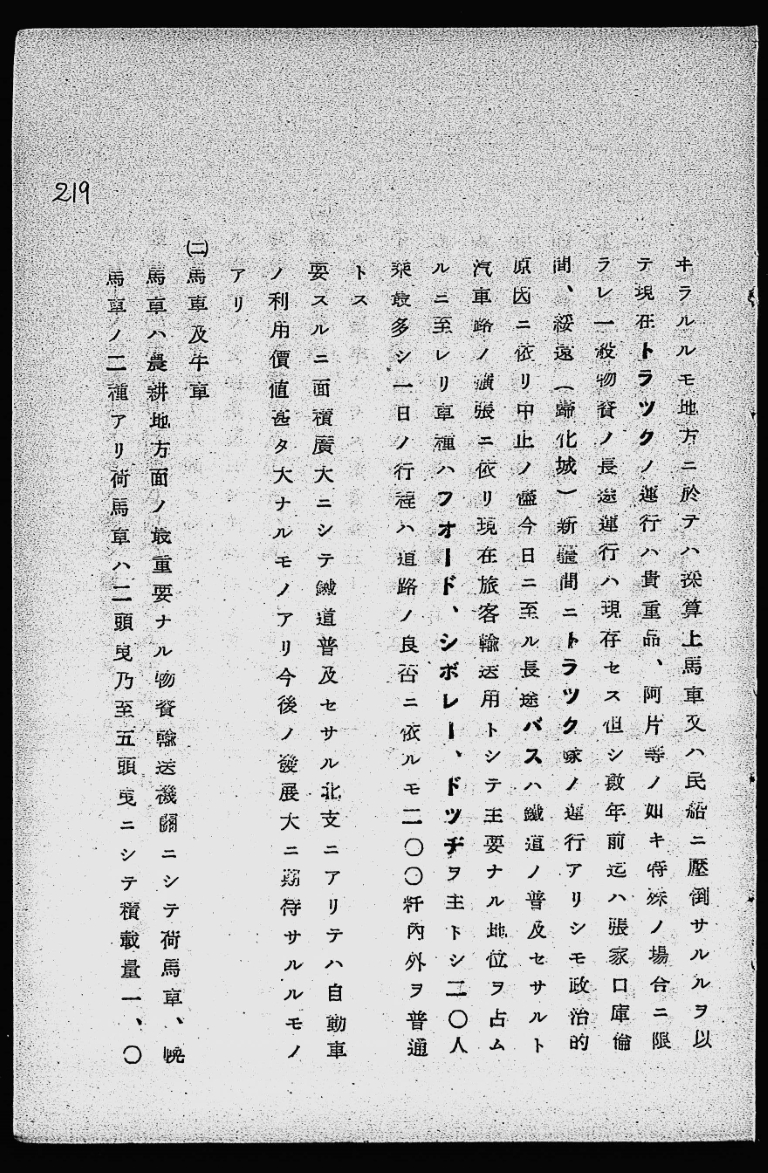 219
ヰラルルモ地方ニ於テハ採算上馬車又ハ民船ニ壓倒サルルヲ以
テ現在トラツクノ運行ハ貴重品、阿片等ノ如キ特殊ノ場合ニ限
ラレ一般物資ノ長途運行ハ現存セス但シ數年前迄ハ張家口庫倫
間、綏遠(歸化城)新疆間ニトラツク隊ノ運行アリシモ政治的
原因ニ依リ中止ノ儘今日ニ至ル長途バスハ鐵道ノ普及セサルト
汽車路ノ擴張ニ依リ現在旅客輸送用トシテ主要ナル地位ヲ占ム
ルニ至レリ車種ハフオード、シボレー、ドツヂヲ主トシ二〇人
乘最多シ一日ノ行程ハ道路ノ良否ニ依ルモ二〇〇粁內外ヲ普通
トス
要スルニ面積廣大ニシテ鐵道普及セサル北支ニアリテハ自動車
ノ利用價値甚タ大ナルモノアリ今後ノ發展大ニ期待サルルモノ
アリ
㈡馬車及牛車
馬車ハ農耕地方面ノ最重要ナル物資輸送機關ニシテ荷馬車、幌
馬車ノ二種アリ荷馬車ハ二頭曳乃至五頭曳ニシテ積載量一、〇